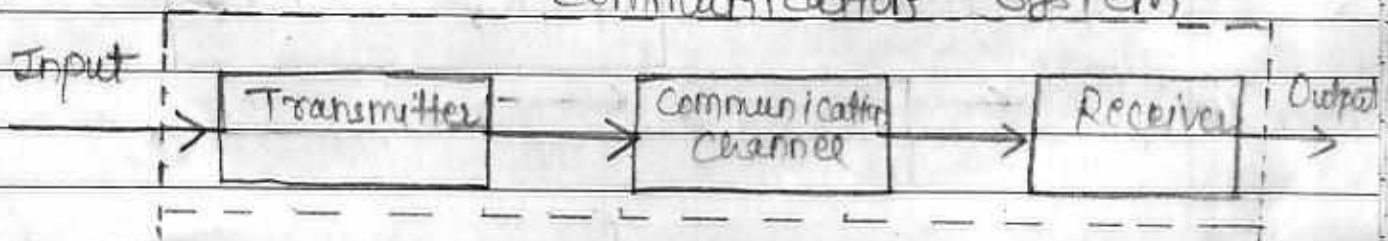 Communication System
Input
Transmitter
Communication
Channel
Receiver
Output